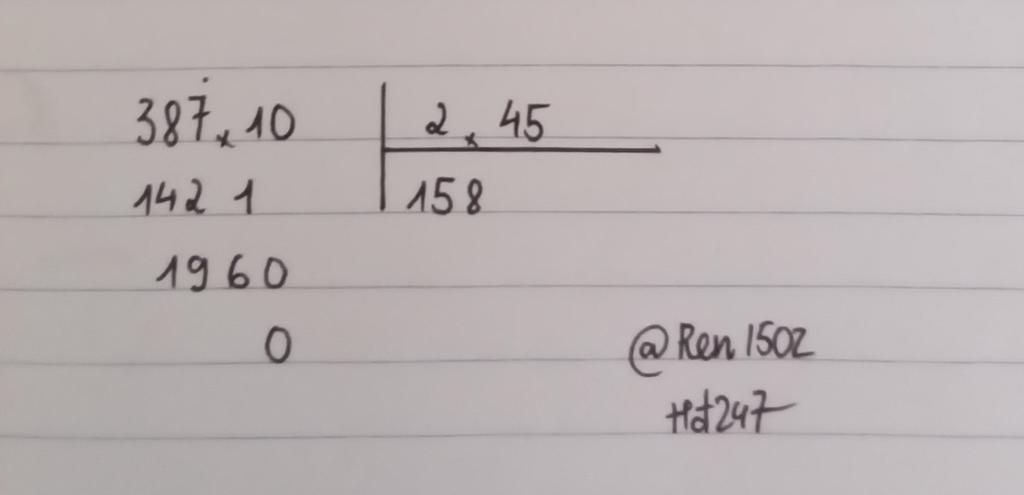 387,10 2,45
1421 158
1960
0
@Ren1502
Hd247